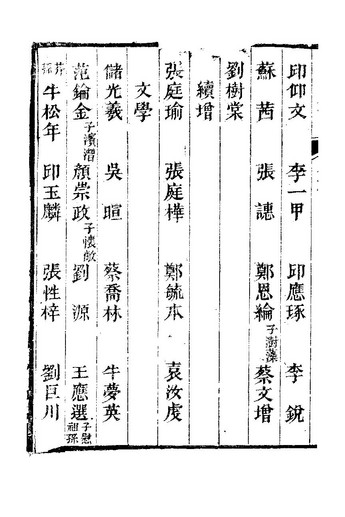 印仰文 李一甲 印應琢 李銳
蘇茜 張譓 鄭恩綸子澍藻 蔡文增
劉樹棠
續增
張庭瑜 張庭樺 鄭毓本 袁汝虔
文學
儲光羲 吳暄 蔡喬林 牛夢英
范鑰金子濱潛 顏崇政子懷敵 劉源 王應選子慰祖孫
牛松年 印玉麟 張性梓 劉巨川